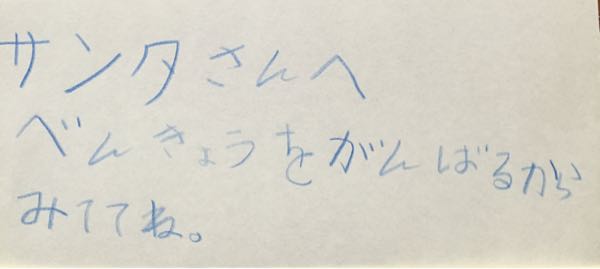 サンタさんへ
べんきょうをがんばるから
みててね。